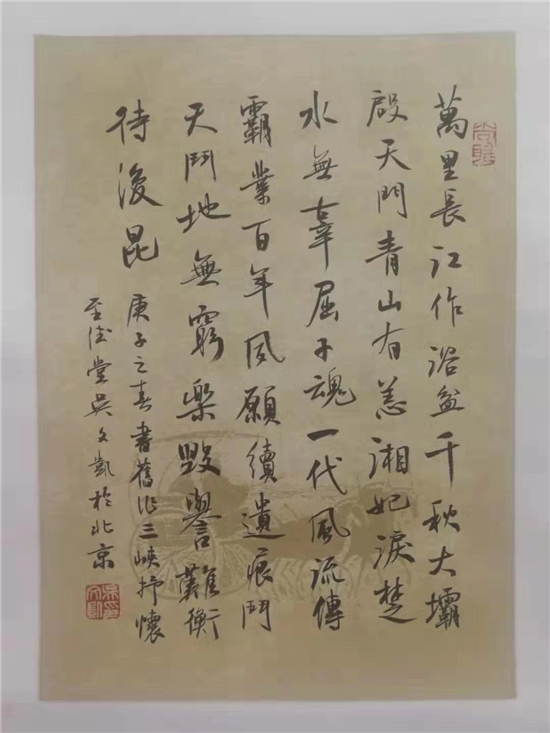 萬里長江作浴盆千秋大壩
啟天門青山有恙湘妃淚楚
水無辜屈子魂一代風流傳
霸業百年夙願續遺痕鬥
天鬥地無窮樂毀譽難衡
待後昆
庚子之春書舊作三峽抒懷
至德堂吳文凱於北京